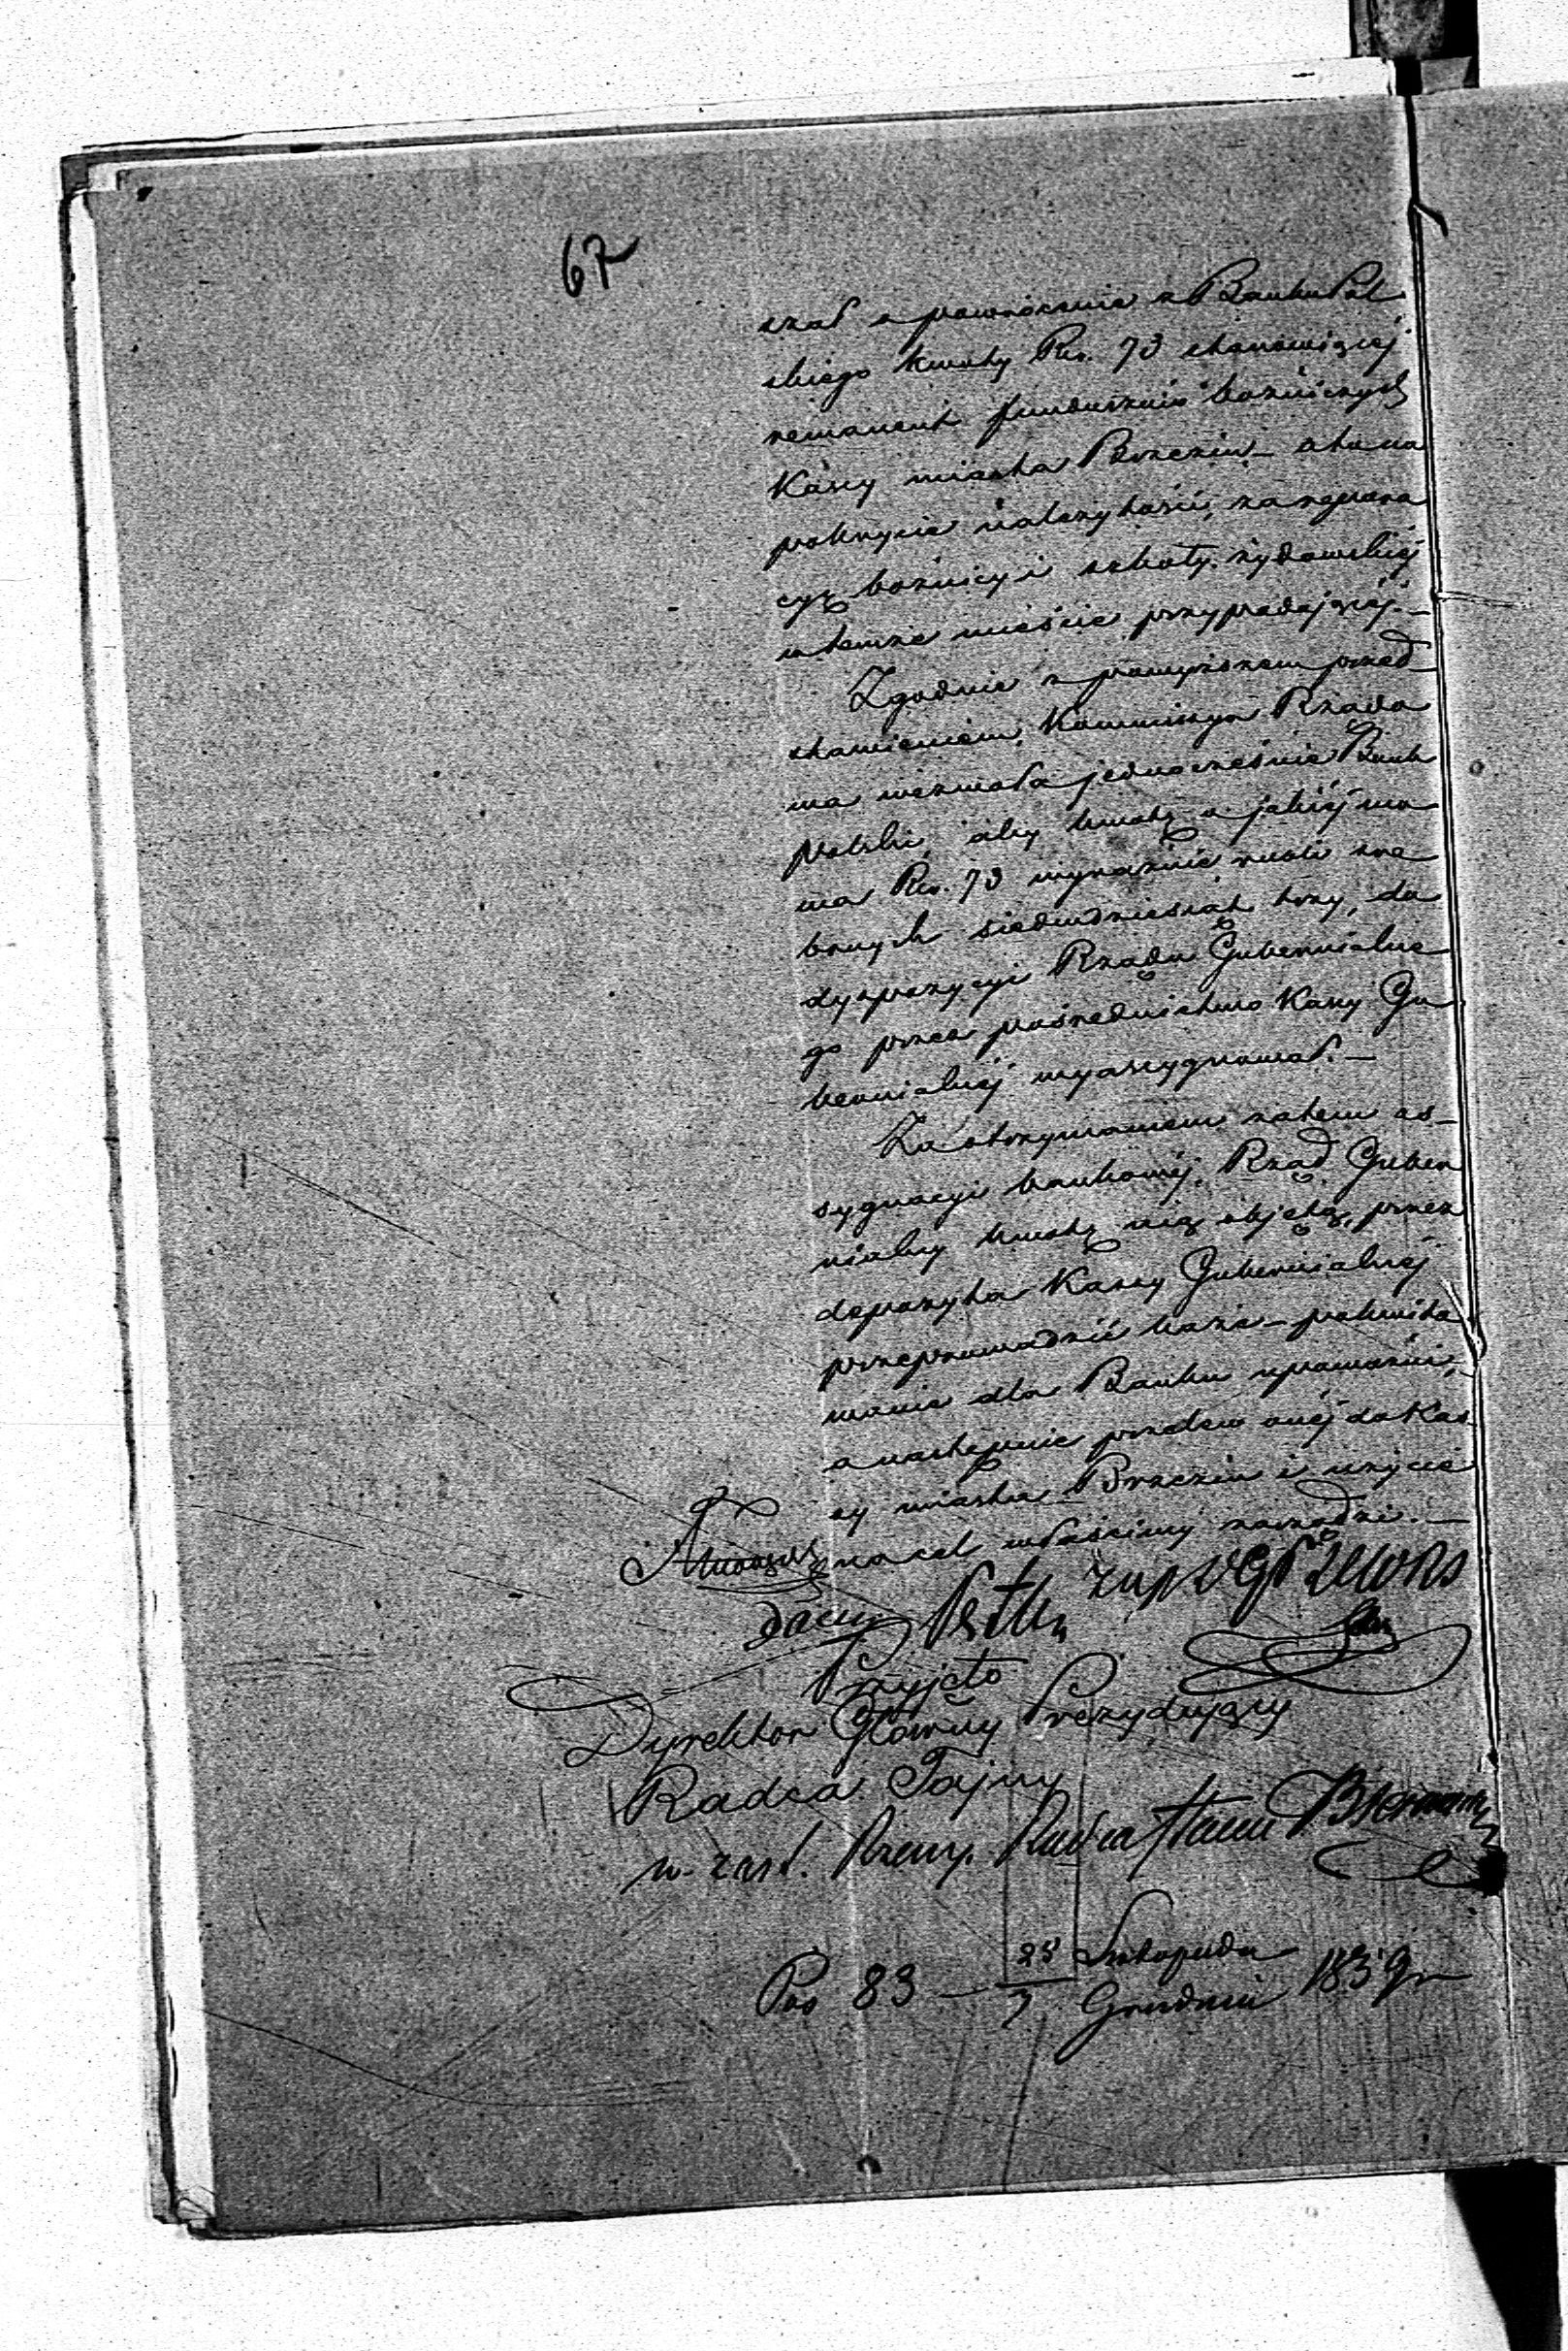 67
szał o powrócenie z Banku Pol
skiego kwoty Rs. 73 stanowiącéj
remanent funduszów bożniczych
Kassy miasta Brzezin – a to na
pokrycie należytości, za repara
cyę bożnicy i szkoły żydowskiéj
w temże mieście przypadającéj. –
Zgodnie z powyższem przed
stawieniem, Kommissya Rządo
wa wezwała jednocześnie Bank
Polski, aby kwotę o jakiéj mo
wa Rs. 73 wyraźnie rubli sre
brnych siedmdziesiąt trzy, do
dyspozycyi Rządu Gubernialne
go przez pośrednictwo Kassy Gu
bernialnéj wyassygnował. –
Za otrzymaniem zatem as–
sygnacyi bankowéj, Rząd Guber
nialny kwotę nią objętą, przez
depozyta Kassy Gubernialnéj
przeprowadzić każe – pokwito
wanie dla Banku upoważni,
a następnie przelew onéj do Kas
sy miasta Brzezin i użycie
na cel właściwy zarządzi. –
Przyjęto
Dyrektor Główny Prezydujący
Radca Tajny
w. zast. Rzeczy. Radca Stanu
Pos 83 – 25 Listopada
7 Grudnia 1859 r